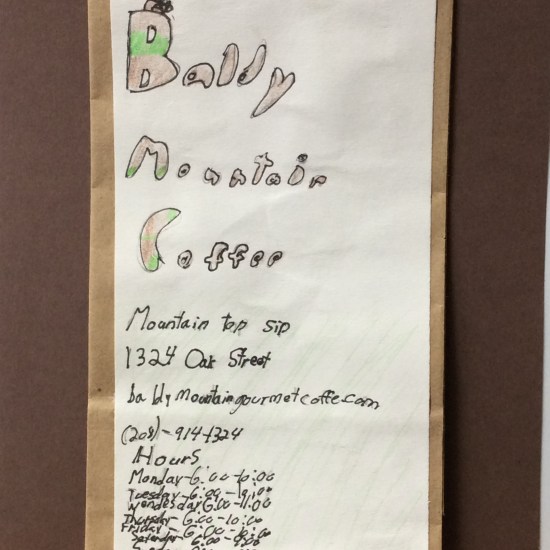 Baldy
Mountain
Coffee
Mountain top sip
1324 Oak Street
baldymountaingourmetcoffe.com
(208)-914-1324
Hours
Monday-6:00-10:00
Tuesday-6:00-10:00
Wendesday 6:00-11:00
Thursday-6:00-10:00
Friday-
Saterday-